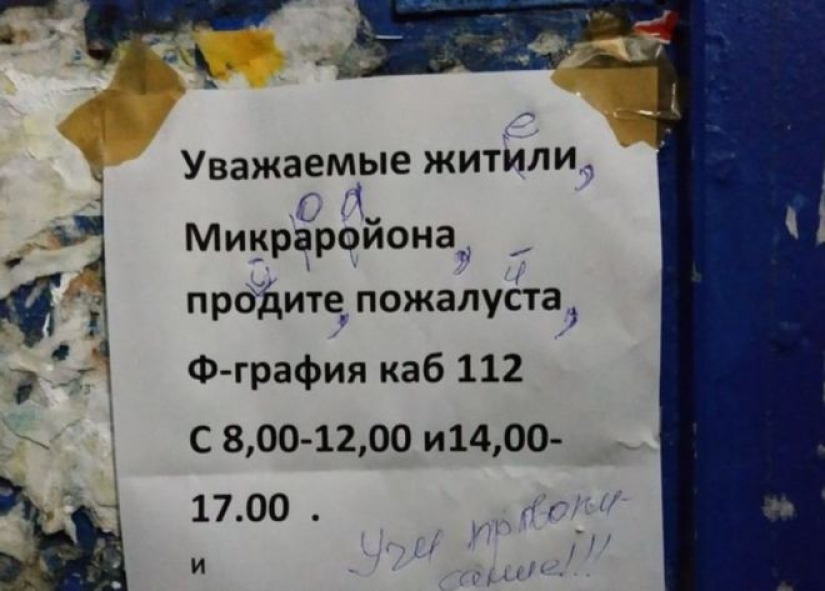 Уважаемые житили,
Микраройона,
продите, пожалуста,
Ф-графия каб 112
С 8,00-12,00 и14,00-
17.00 .
и
Учи правопи-
сание!!!